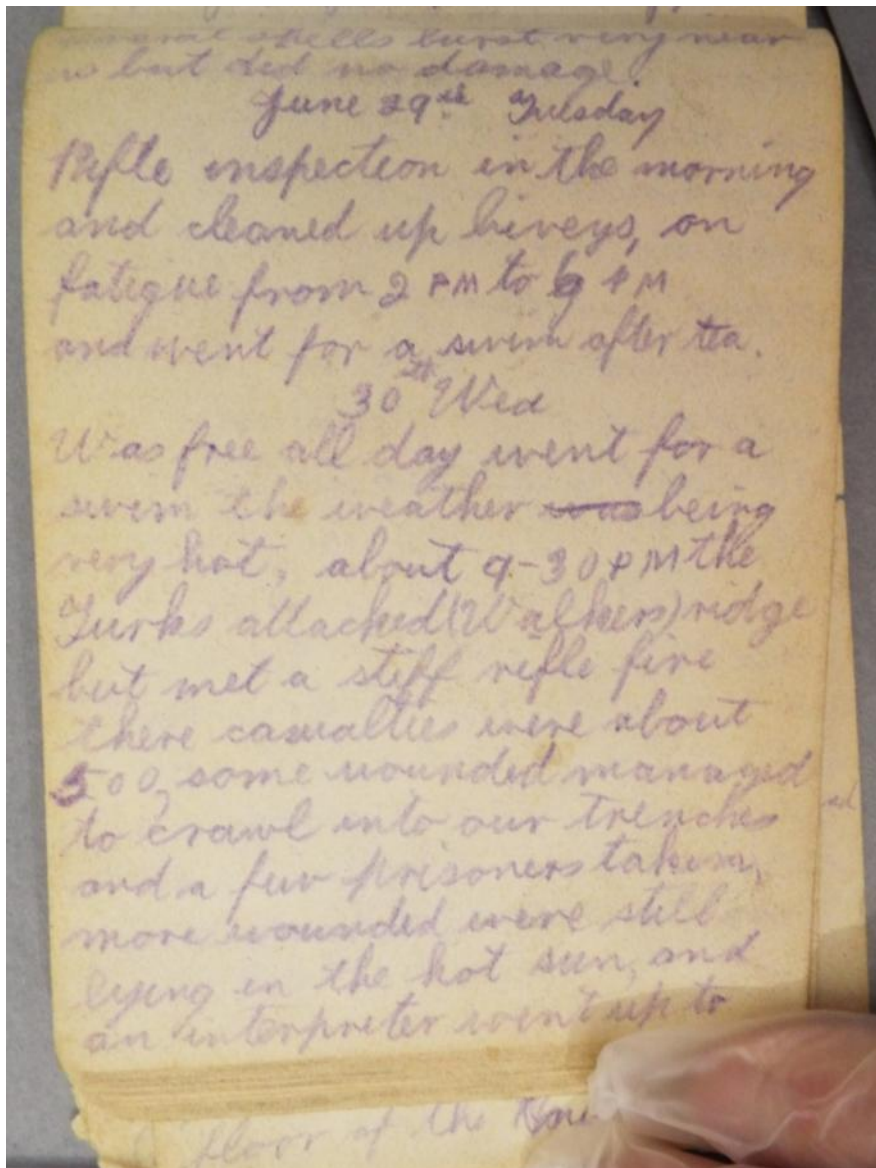 several shells burst very near
us but did no damage.
June 29th Tuesday
Rifle inspection in the morning
and cleaned up biveys, on
fatigue from 2 PM to 6 PM
and went for a swim after tea.
30th Wed
Was free all day went for a
swim the weather was being
very hot, about 9-30 PM the
Turks attacked (Walkers) ridge
but met a stiff refle fire
there casualties were about
500, some wounded managed
to crawl into our trenches
and a few prisoners taken,
more wounded were still
lying in the hot sun, and
an interpreter went up to
floor of the